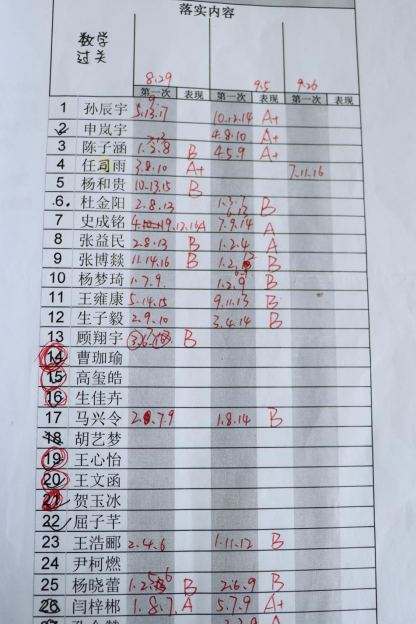 落实内容
数学
过关
8.29 9.5 9.26
第一次 表现 第一次 表现 第一次 表现
1 孙辰宇 5.13.17 10.12.14 A+
2 申岚宇 4.8.10 A+
3 陈子涵 1.3.8 B 4.5.9 A+
4 任司雨 3.8.10 A+ 7.11.16
5 杨和贵 10.13.15 B
6 杜金阳 2.8.13 B
7 史成铭 7.9.14 A
8 张益民 2.8.13 B 1.2.4 A
9 张博燚 11.14.16 B B
10 杨梦琦 1.7.9 1.2.9 B
11 王雍康 5.14.15 9.11.13 B
12 生子毅 2.9.10 3.4.14 B
13 顾翔宇 B
14 曹珈瑜
15 高玺皓
16 生佳卉
17 马兴令 1.8.14 B
18 胡艺梦
19 王心怡
20 王文函
21 贺玉冰
22 屈子芊
23 王浩郦 2.4.6 1.11.12 B
24 尹柯燃
25 杨晓蕾 B 2.6.9 B
26 闫梓郴 1.8.7 A 5.7.9 A+